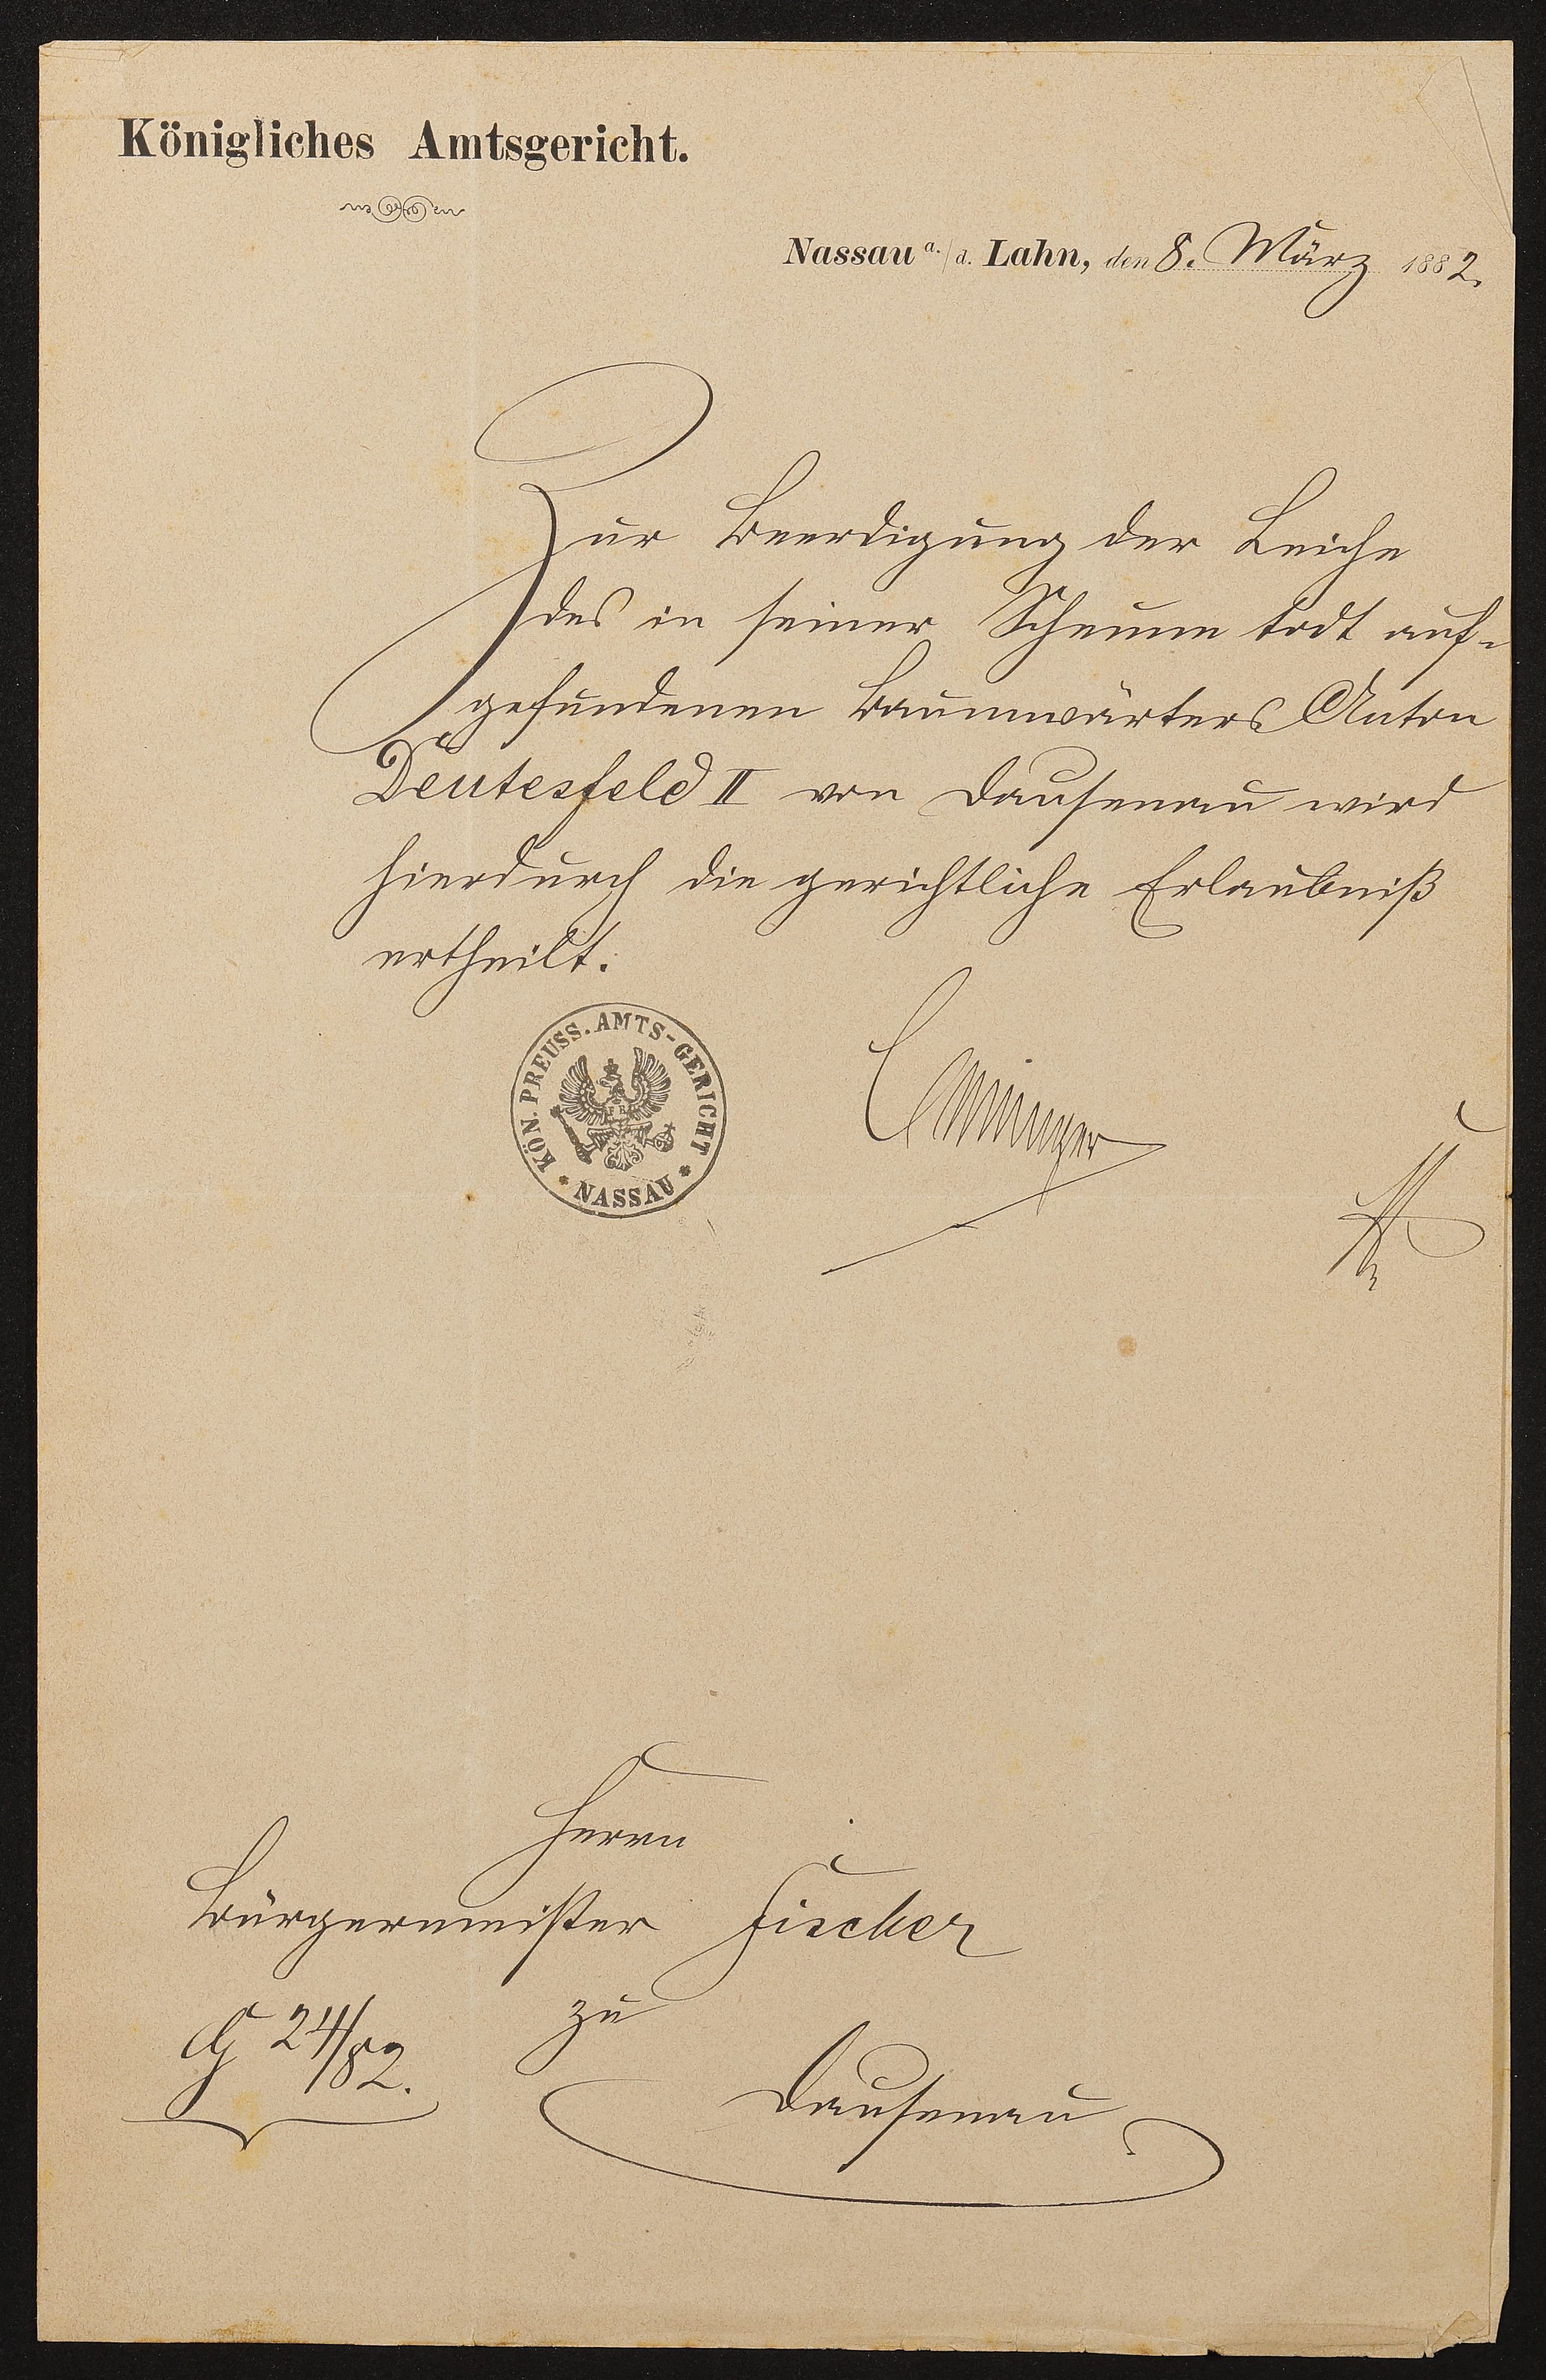 Königliches Amtsgericht.
Nassau a./d. Lahn, den 8. März 1882.
Zur Beerdigung der Leiche
des in seiner Scheune todt auf-
gefundenen Baumwärters Anton
Deutesfeld II von Dausenau wird
hierdurch die gerichtliche Erlaubniß
ertheilt.
KÖN. PREUSS. AMTS-GERICHT
* NASSAU *
Herrn
Bürgermeister Fischer
zu
G 24/82.
Dausenau